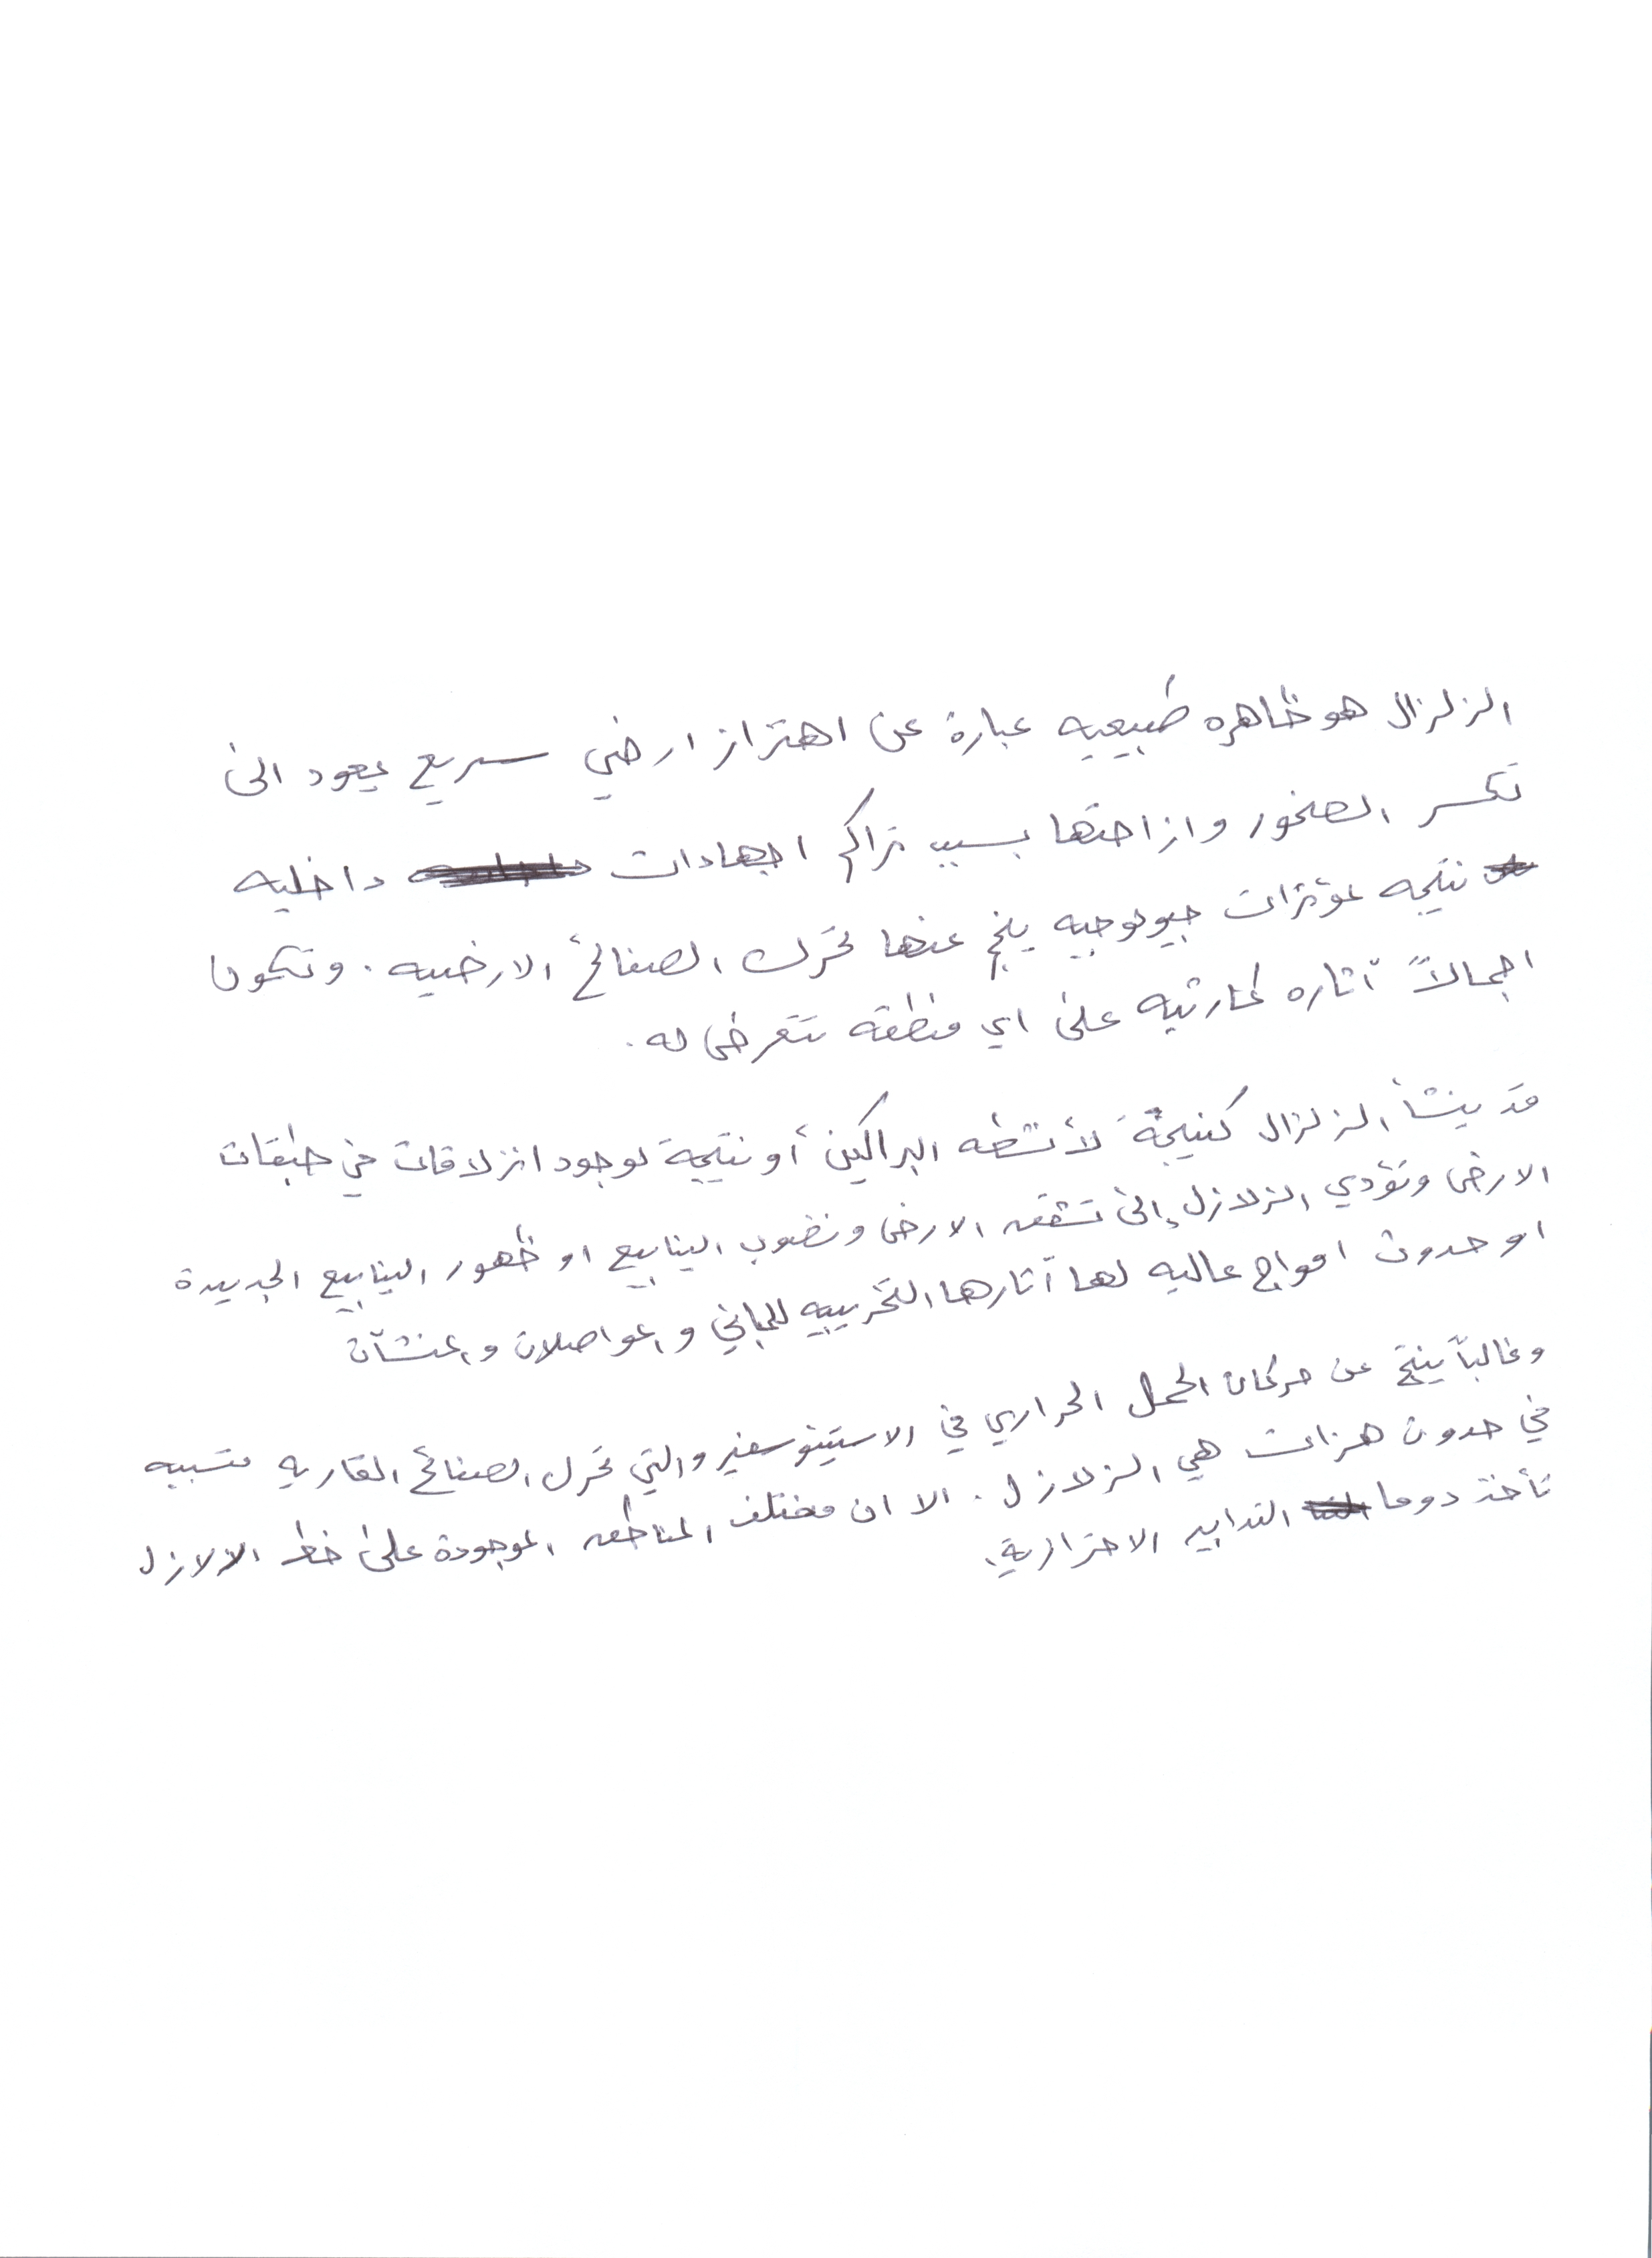 الزلزال هو ظاهره طبيعيه عبارة عن اهتزاز ارضي سريع يعود الى
تكسر الصخور وازاحتها بسبب تراكم اجهادات داخليه
نتيجه لمؤثرات جيولوجيه ينجم عنها تحرك الصفائح الارضيه . وتكون
اجمالاً آثاره كارثيه على اي منطقه تتعرض له .
قد ينشأ الزلزال كنتيجة لأنشطه البراكين أو نتيجة لوجود انزلاقات في طبقات
الارض وتؤدي الزلازل إلى تشقق الارض ونضوب الينابيع او ظهور الينابيع الجديدة
او حدوث امواج عاليه لها آثارها التخريبيه للمباني والمواصلات والمنشآت
وغالباً ينتج عن حركات الحمل الحراري في الاستينوسفير والتي تحرك الصفائح القاريه متسببه
في حدوث هزات هي الزلازل . الا ان مختلف المناطق الموجودة على خط الزلازل
تأخذ دوما التدابير الاحترازية .